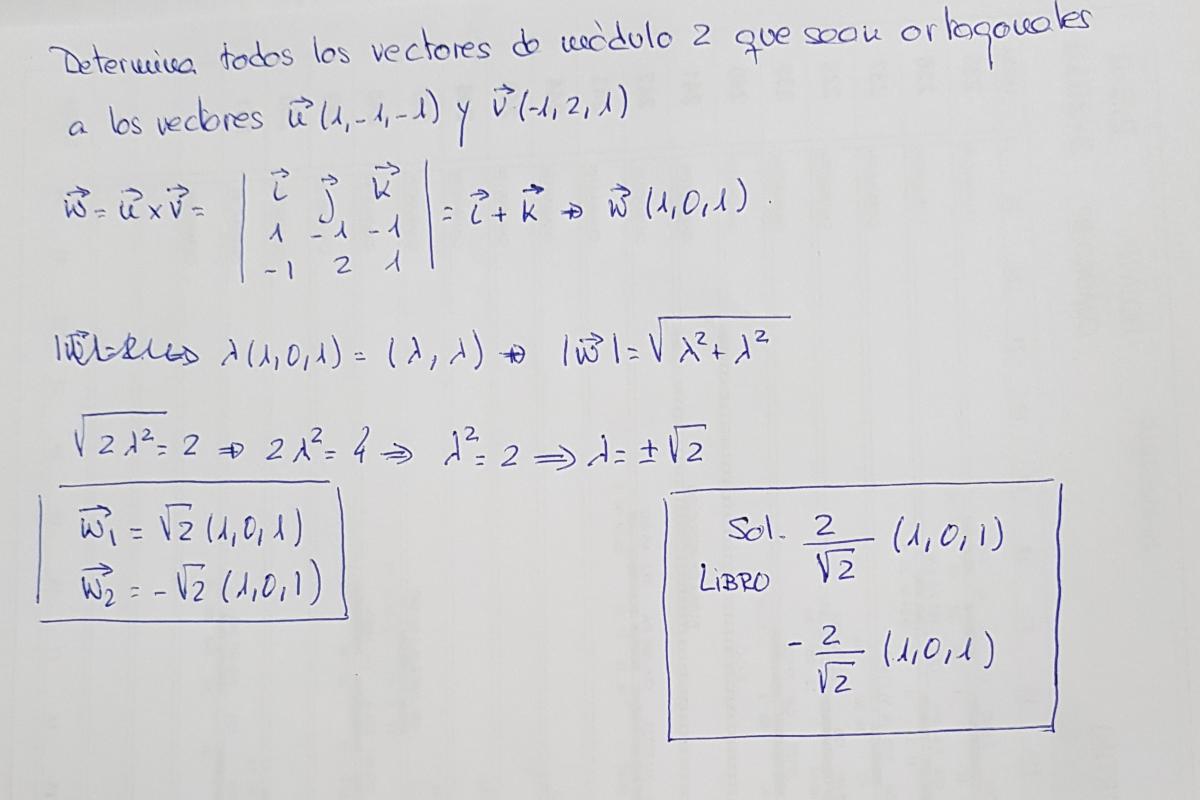 Determina todos los vectores de módulo 2 que sean ortogonales
a los vectores u⃗ (1,-1,-1) y v⃗ (-1, 2, 1)
w⃗ = u⃗ x v⃗ = | i⃗ j⃗ k⃗ | = i⃗ + k⃗ ⇒ w⃗ (1,0,1).
1 -1 -1
-1 2 1
λ(1,0,1) = (λ, λ) ⇒ |w⃗| = √(λ² + λ²)
√(2λ²) = 2 ⇒ 2λ² = 4 ⇒ λ² = 2 ⇒ λ = ±√2
w⃗₁ = √2 (1,0,1)
w⃗₂ = -√2 (1,0,1)
Sol. 2/√2 (1,0,1)
LIBRO
- 2/√2 (1,0,1)